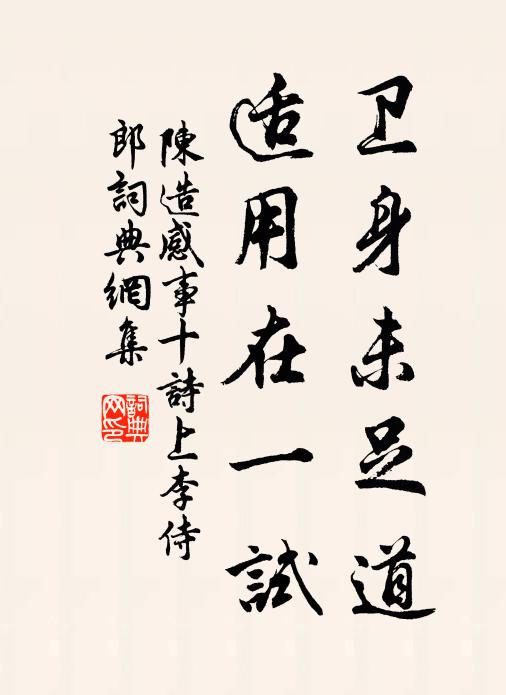 卫身未足道
适用在一試
陳造感事十詩上李侍
郎詞典網集
詞典网印